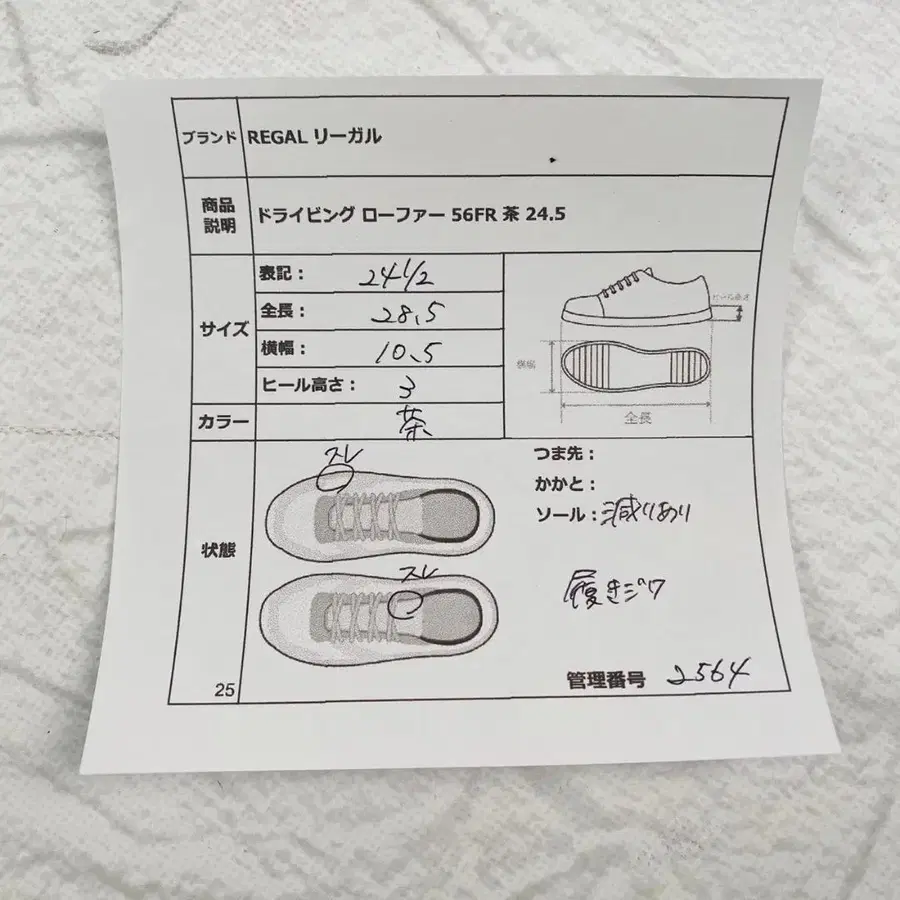 ブランド REGAL リーガル
商品説明 ドライビング ローファー 56FR 茶 24.5
サイズ
表記： 24 1/2
全長： 28.5
横幅： 10.5
ヒール高さ： 3
ヒール高さ
横幅
全長
カラー 茶
状態
スレ
スレ
つま先：
かかと：
ソール：減りあり
履きジワ
管理番号 2564
25